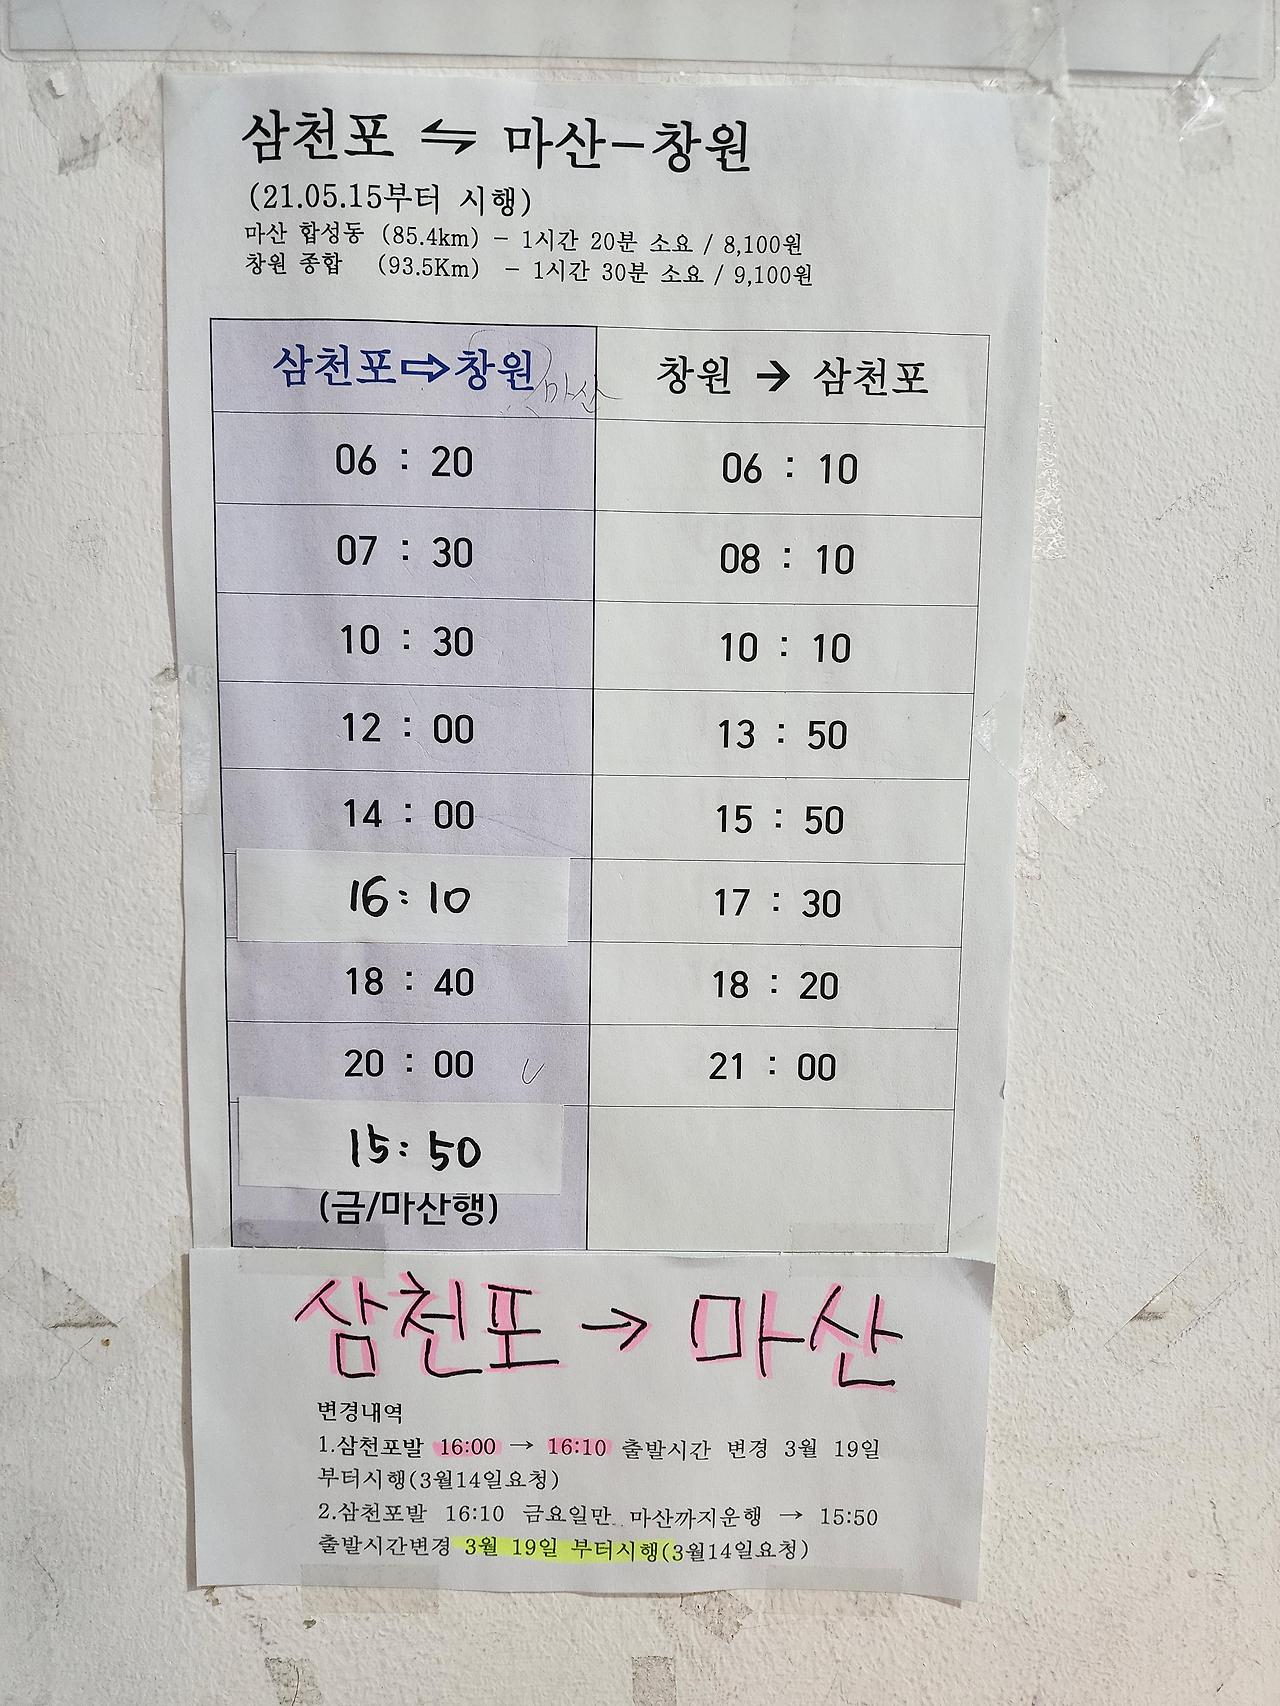 삼천포 ⇋ 마산-창원
(21.05.15부터 시행)
마산 합성동 (85.4km) - 1시간 20분 소요 / 8,100원
창원 종합 (93.5Km) - 1시간 30분 소요 / 9,100원
삼천포⇨창원 마산 창원 → 삼천포
06 : 20 06 : 10
07 : 30 08 : 10
10 : 30 10 : 10
12 : 00 13 : 50
14 : 00 15 : 50
16:10 17 : 30
18 : 40 18 : 20
20 : 00 21 : 00
15:50
(금/마산행)
삼천포 → 마산
변경내역
1.삼천포발 16:00 → 16:10 출발시간 변경 3월 19일
부터시행(3월14일요청)
2.삼천포발 16:10 금요일만 마산까지운행 → 15:50
출발시간변경 3월 19일 부터시행(3월14일요청)